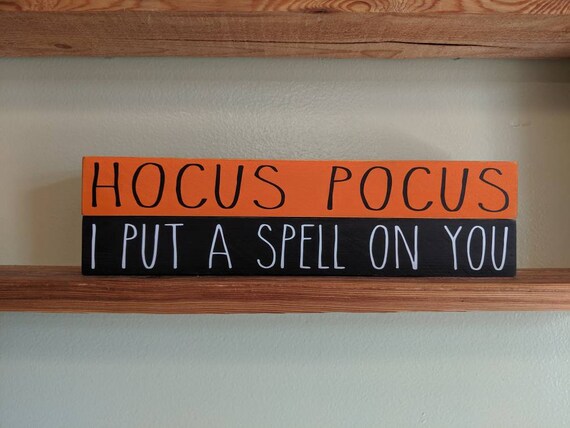 HOCUS POCUS
I PUT A SPELL ON YOU